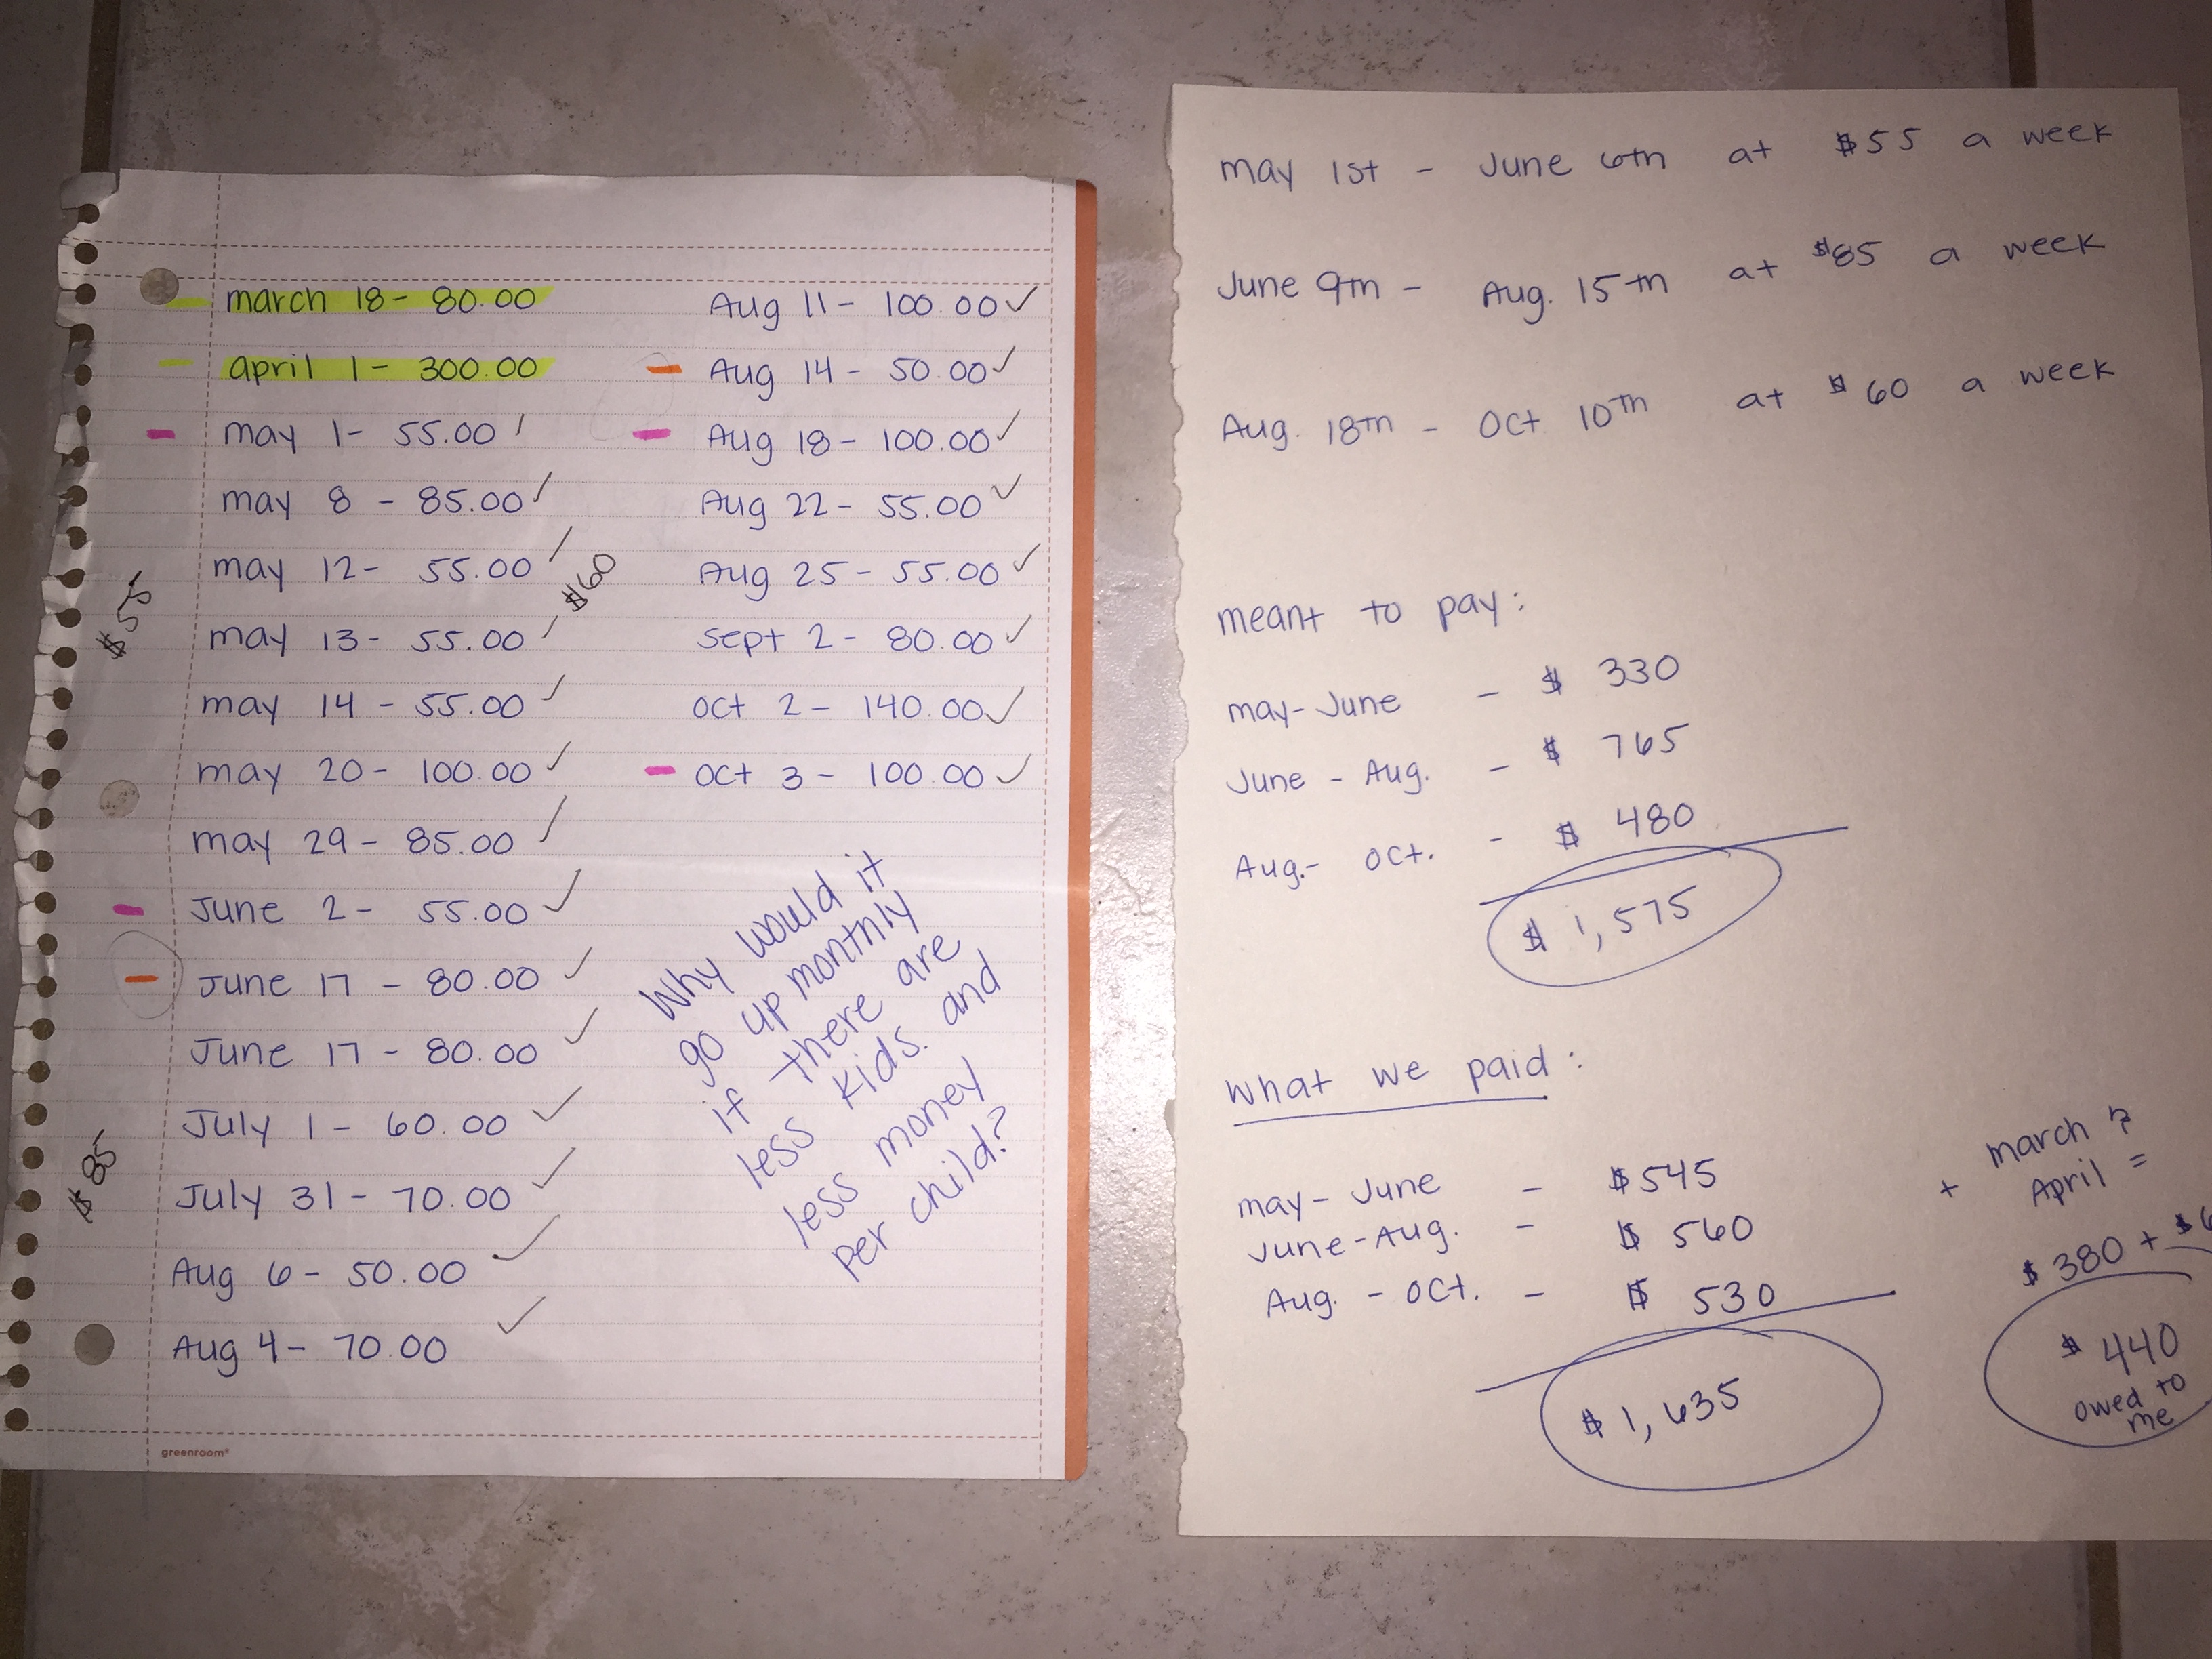 march 18 - 80.00
april 1 - 300.00
may 1 - 55.00
may 8 - 85.00
may 12 - 55.00
may 13 - 55.00
may 14 - 55.00
may 20 - 100.00
may 29 - 85.00
June 2 - 55.00
June 17 - 80.00
June 17 - 80.00
July 1 - 60.00
July 31 - 70.00
Aug 6 - 50.00
Aug 4 - 70.00
$55
$85
$60
greenroom®
Aug 11 - 100.00
Aug 14 - 50.00
Aug 18 - 100.00
Aug 22 - 55.00
Aug 25 - 55.00
Sept 2 - 80.00
Oct 2 - 140.00
Oct 3 - 100.00
Why would it
go up monthly
if there are
less kids. and
less money
per child?
may 1st - June 6th at $55 a week
June 9th - Aug. 15th at $85 a week
Aug. 18th - Oct 10th at $60 a week
meant to pay:
may - June - $ 330
June - Aug. - $ 765
Aug. - Oct. - $ 480
$ 1,575
What we paid:
may - June - $545
June - Aug. - $ 560
Aug. - Oct. - $ 530
$ 1,635
+ march ?
April =
$380 + $6
$ 440
owed to
me